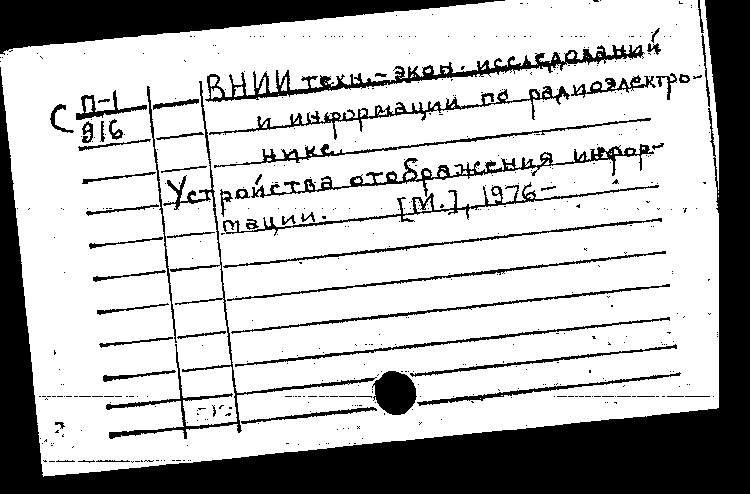 С П-1
916
ВНИИ техн.-экон. исследований
и информации по радиоэлектро-
нике.
Устройства отображения инфор-
мации. [М.], 1976-